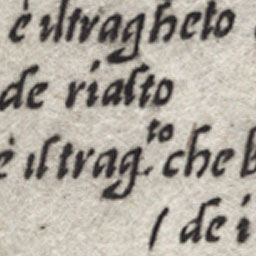 è il tragheto
de rialto
è il trag.to che
/ de i